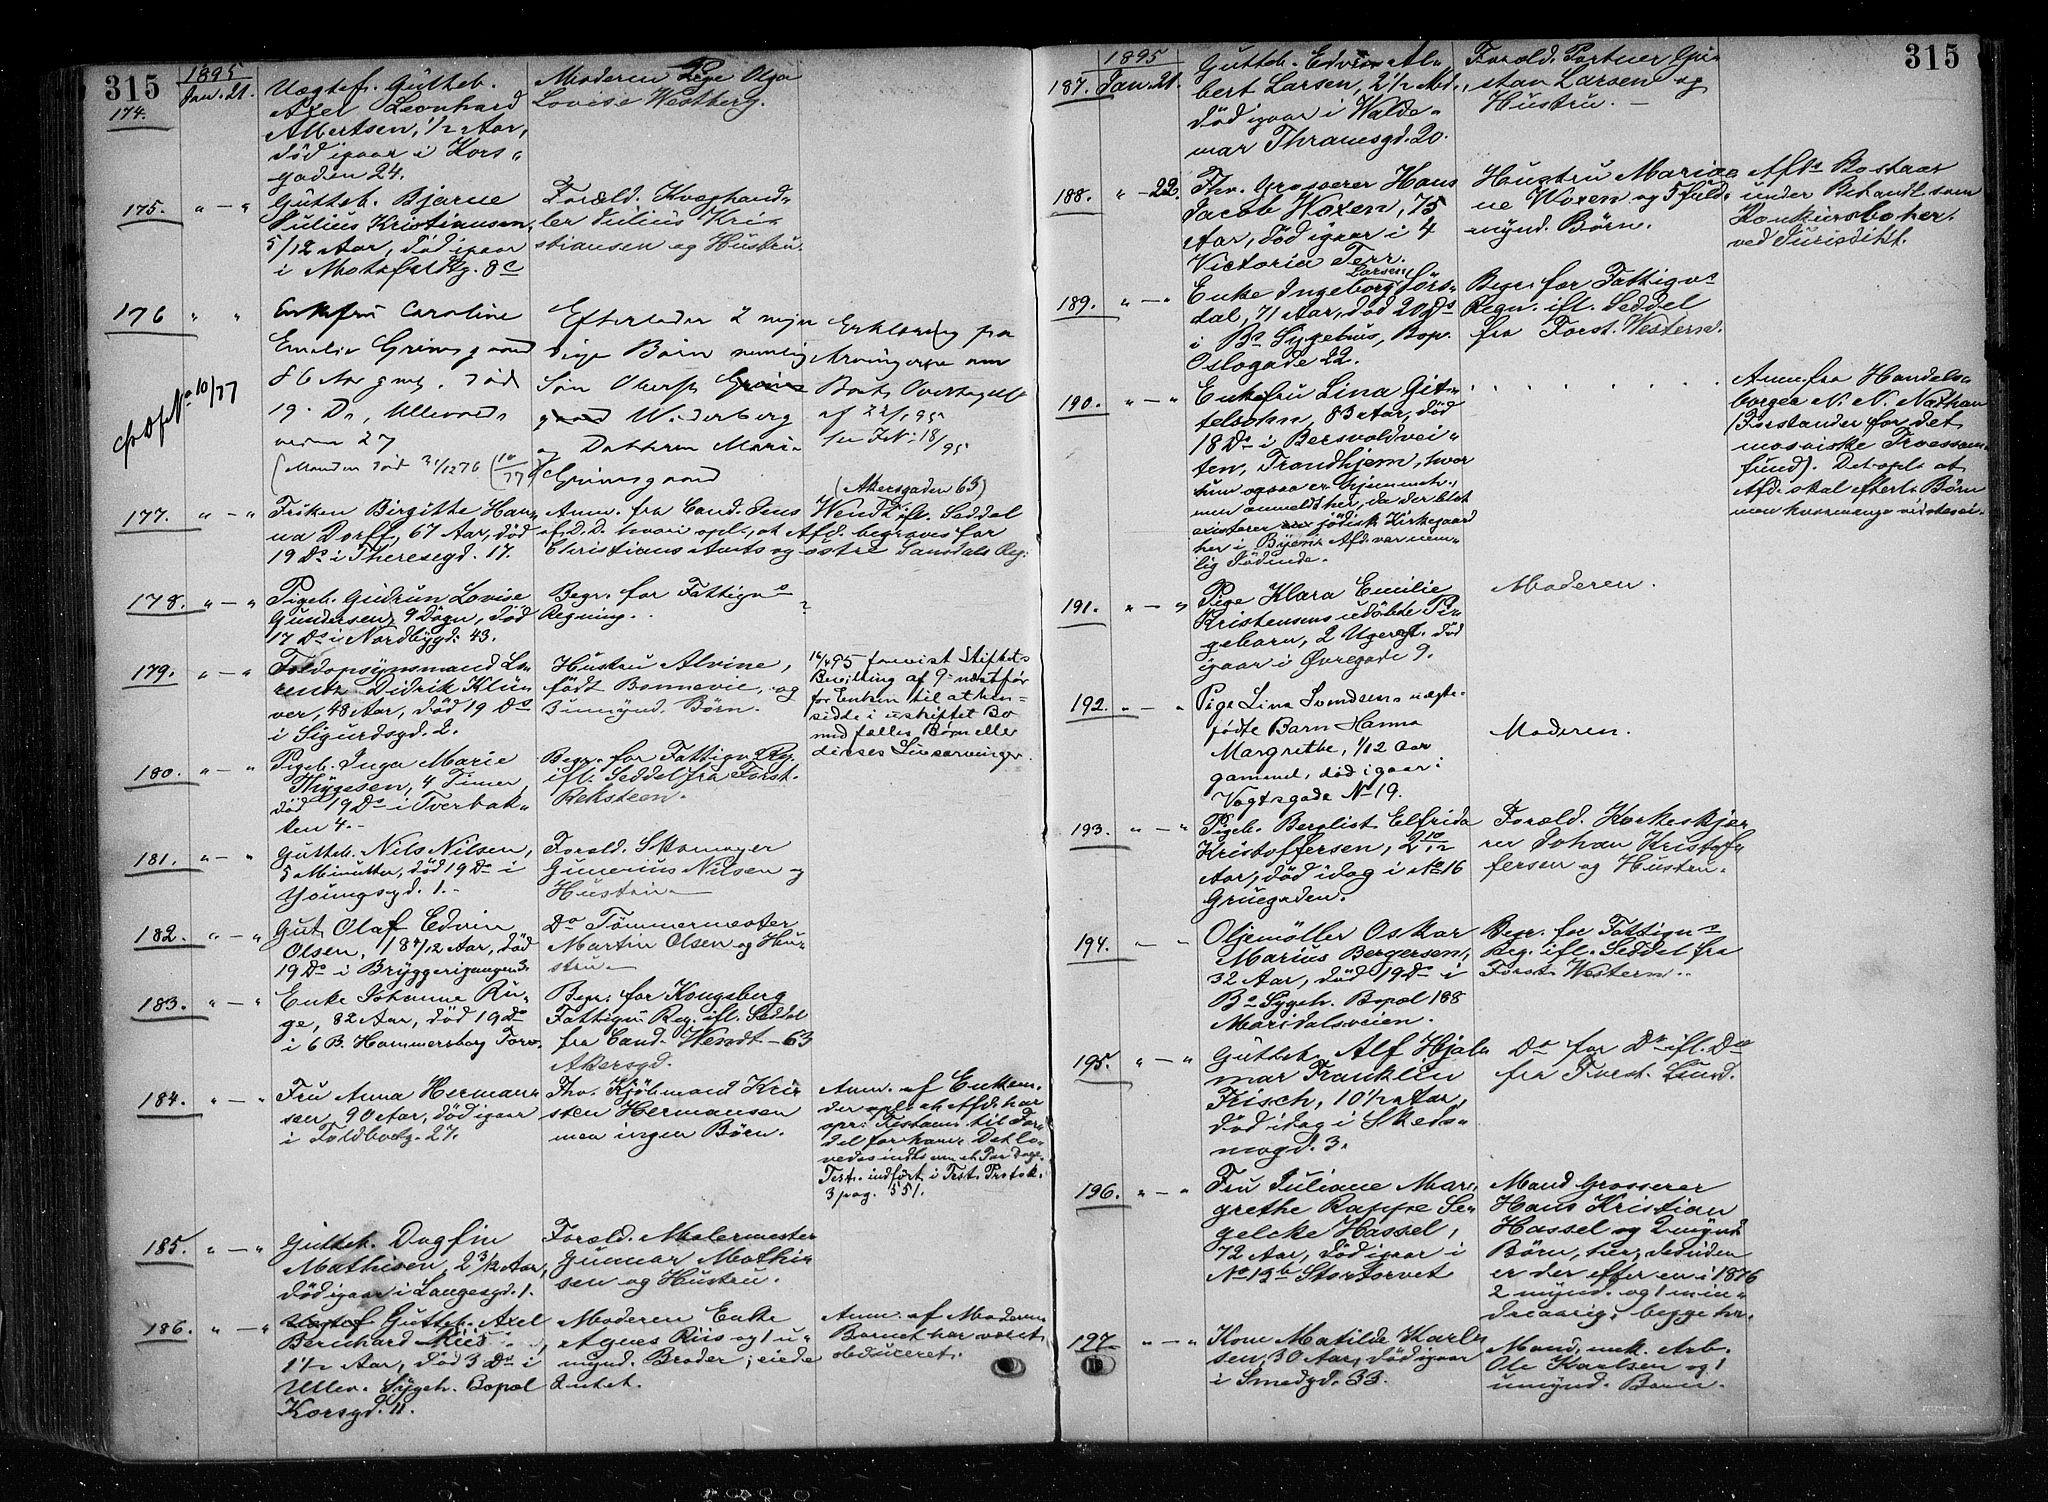 315
1895
174.
Jan. 21.
Uægtef. Gütteb.
Axel Leonhard
Albertsen, 1/2 Aar,
död igaar i Kors-
gaden 24.
Moderen Pige Olga
Lovise Westberg.
175.
" — "
Gütteb. Bjarne
Julius Kristiansen,
5/12 Aar, död igaar
i Motzfeldtg. 8c
Foræld. Kvæghand-
ler Julius Kri-
stiansen og Hustru.
176
" "
Enkefru Caroline
Emelie Grimsgaard
86 Aar gml. död
19. Ds, Ullevaals
veien 27
(Manden död 21/12 76 (10/77)
Efterlader 2 myn
dige Börn nemlig
Sön Oberst Grims
gaard Winderberg
og Datteren Marie
Grimsgaard
Erklæring fra
Arvingerne om
Boets Overtagelse
af 22/1 95
see J. N. 18/95
177.
" — "
Fröken Birgitte Han-
na Dorff, 67 Aar, död
19 Ds i Theresegd. 17.
Anm. fra Cand. Jens Wendt ifl. Seddel
af D. D. hvori opl., at Afd. begraves for
Christians Amts og östre Reg.
(Akersgaden 63)
178.
" — "
Pigeb. Gudrun Lovise
Gundersen, 9 Dögn, död
17 Ds i Nordbygd. 43.
Begr. for Fattigv.s
Regning.
179.
" — "
Toldopsynsmand Lo-
rentz Didrik Klü-
ver, 48 Aar, död 19 Ds
i Sigurdsgd. 2.
Hustru Alvine,
födt Bonnevie, og
3 umynd. Börn.
16/4 95 forevist Stiftets
Bevilling af 9. næstfør
for Enken til at hen-
sidde i uskiftet Bo
med fælles Børn eller
disses Livsarvinger.
180.
" — "
Pigeb. Inga Marie
Thygesen, 4 Timer,
död 19 Ds i Tverbak-
ken 4.
Begr. for Fattigv. Rg.
ifl. Seddel fra Forst.
Reksteen.
181.
" — "
Gütteb. Nils Nilsen,
5 Minutter, död 19 Ds i
Youngsgd. 1.
Foræld. Skomager
Gunerius Nilsen og
Hustru.
182.
" — "
Gut Olaf Edvin
Olsen, 18 4/12 Aar, död
19 Ds i Bryggerigangen 3.
Do Tömmermester
Martin Olsen og Hu-
stru.
183.
" — "
Enke Johanne Ru-
ge, 82 Aar, död 19 Ds
i 6 B. Hammersborg Torv.
Begr. for Kongsberg
Fattigv. Reg. ifl. Seddel
fra Cand. Wendt — 63
Akersgd.
184.
" — "
Fru Anna Herman-
sen, 90 Aar, död igaar
i Toldbodg. 27.
Fhv. Kjöbmand Kri-
sten Hermansen
men ingen Börn.
Anm. af Enkem.
der opl. at Afd. har
opr. Testam. til For-
del for ham. Det lo-
vedes indl. om et Par Dage.
Test. indfört i Test. Protok.
3 pag. 551.
185.
" — "
Gütteb. Dagfin
Mathisen, 2 3/12 Aar,
död igaar i Langesgd. 1.
Foræld. Malermester
Gunnar Mathi-
sen og Hustru.
186.
" — "
Uægtef. Gütteb. Axel
Bernhard Riis,
1 1/2 Aar, död 3 Ds i
Ullev. Sygeh. Bopæl
Korsgd. 11.
Moderen Enke
Agnes Riis og 1 u-
mynd. Broder; eiede
Intet.
Anm. af Moderen.
Barnet har været
obduceret.
315
1895
187.
Jan. 21.
Gütteb. Edvin Al-
bert Larsen, 2 1/2 Md.,
död igaar i Walde-
mar Thranesgd. 20.
Foræld. Portner Gu-
stav Larsen og
Hustru. —
188.
" — 22.
Fhv. Grosserer Hans
Jacob Woxen, 75
Aar, död igaar i 4
Victoria Terr.
Hustru Maria-
ne Woxen og 5 fuld-
mynd. Börn.
Afds Bo staar
under Behandl. som
Konkursbo her
ved Jurisdikt.
189.
" — "
Enke Ingeborg Larsen Törs-
dal, 71 Aar, död 20 Ds
i Bs Sygehus, Bop.
Oslogade 22.
Begr. for Fattigv.s
Regn. ifl. Seddel
fra Forst. Western.
190.
" — "
Enkefru Lina Git-
telsohn, 83 Aar, död
18 Ds i Bersvoldvei-
ten, Trondhjem, hvor
hun ogsaa er hjemmeh.,
men anmeldt her, da der blot
existerer jödisk Kirkegaard
her i Byen. Afd. var nem-
lig Jödinde.
. . . . . . . . . .
Anm. fra Handels-
borger N. N. Nathan
(Forstander for det
mosaiske Troessam-
fund). Det opl. at
Afd. skal efterl. Börn
men hvormange vidstes ei.
191.
" — "
Pige Klara Emilie
Kristensens udöbte Pi-
gebarn, 2 Uger gl. död
igaar i Övregade 9.
Moderen.
192.
" — "
Pige Lina Svendsens uægte-
fødte Barn Hanna
Margrethe, 1/12 Aar
gammel, död igaar i
Vogtsgade No 19.
Moderen.
193.
" — "
Pigeb. Bergliot Elfrida
Kristoffersen, 2 10/12
Aar, död idag i No 16
Gruegaden.
Foræld. Korkeskjæ-
rer Johan Kristof-
fersen og Hustru.
194.
" — "
Oljemöller Oskar
Marius Bergersen,
32 Aar, död 19 Ds i
Bs Sygeh. Bopæl 188
Maridalsveien.
Begr. for Fattigv.s
Reg. ifl. Seddel fra
Forst. Western.
195.
" — "
Gütteb. Alf Hjal-
mar Franklin
Frisch, 10 1/2 Aar,
död idag i Skeds-
mogd. 3.
Do for Do ifl. Do
fra Forst. Lund.
196.
" — "
Fru Juliane Mar-
grethe Rappe Se-
gelcke Hassel,
72 Aar, död igaar i
No 13b Stortorvet
Mand Grosserer
Hans Kristian
Hassel og 2 mynd.
Börn, her, desuden
er der efter en i 1876
2 mynd. og 1 min-
dreaarig, begge her.
197.
" — "
Kone Matilde Karl-
sen, 30 Aar, död igaar
i Smedgd. 33.
Mand, mek. Arb.
Ole Karlsen og 1
umynd. Barn.